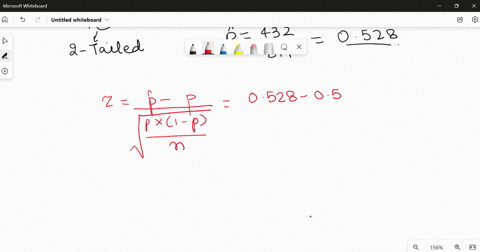 Microsoft Whiteboard
Untitled whiteboard
2-Tailed
p̂ = 432 = 0.528
z = p̂ - p = 0.528 - 0.5
√ p × (1 - p)
n
156%